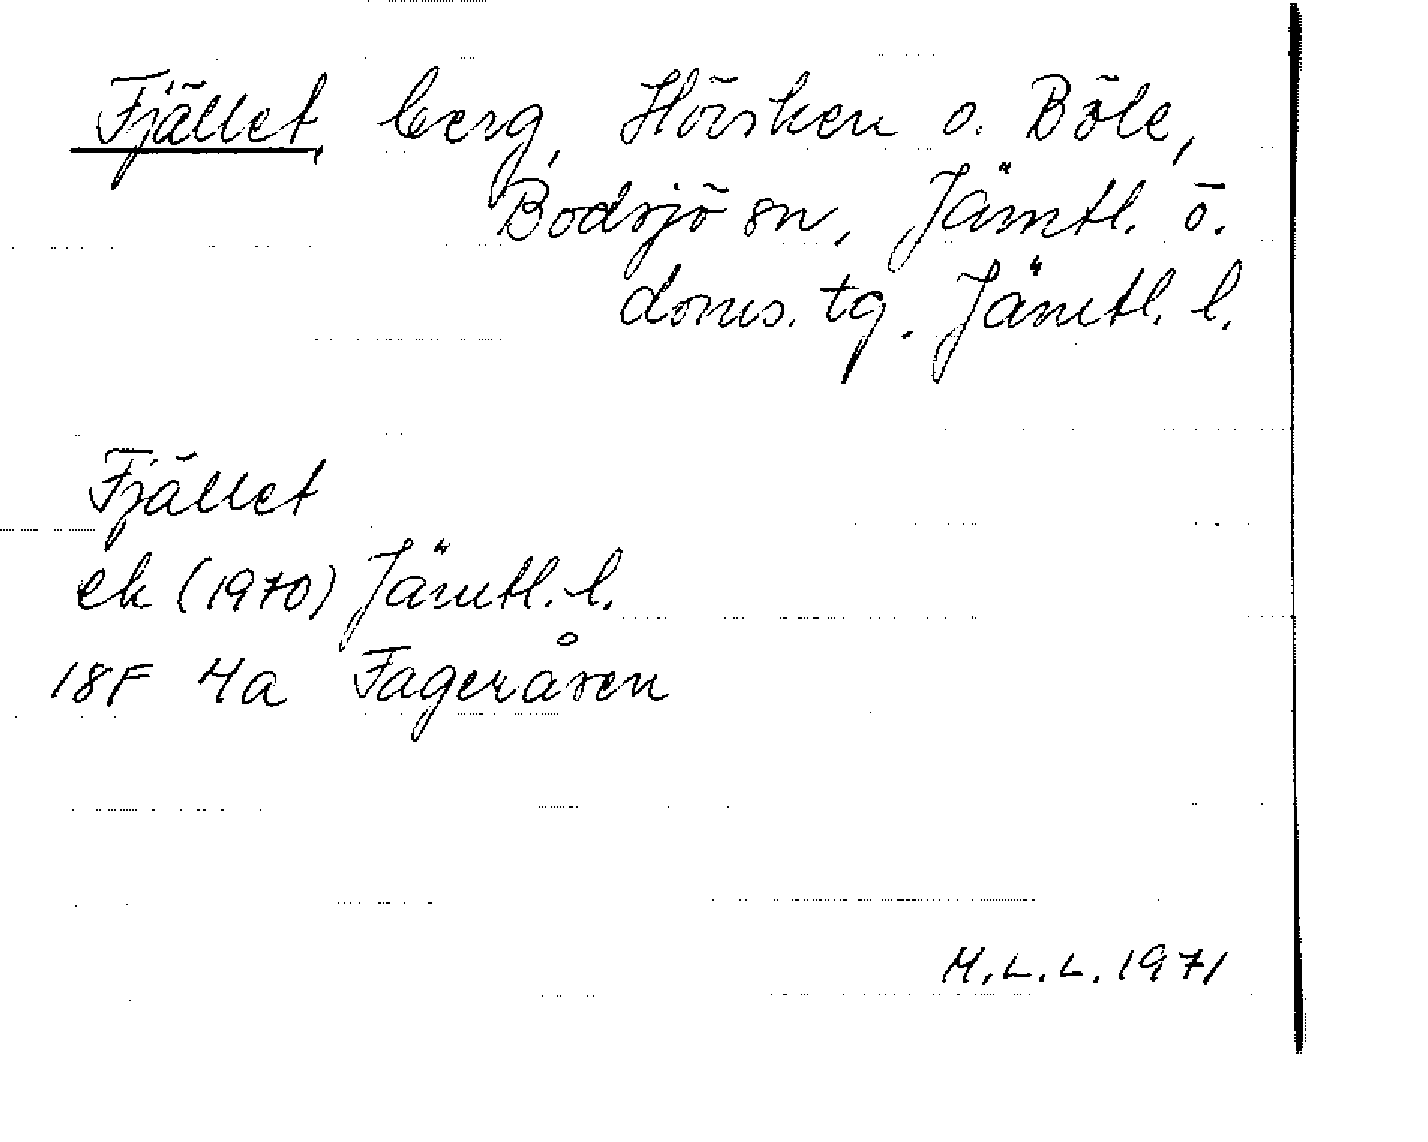 Fjället, berg, Hövsken o. Böle,
Bodsjö sn, Jämtl. ö.
doms. tg. Jämtl. l.
Fjället
ek (1970) Jämtl. l.
18F 4a Fageråsen
M.L.L. 1971